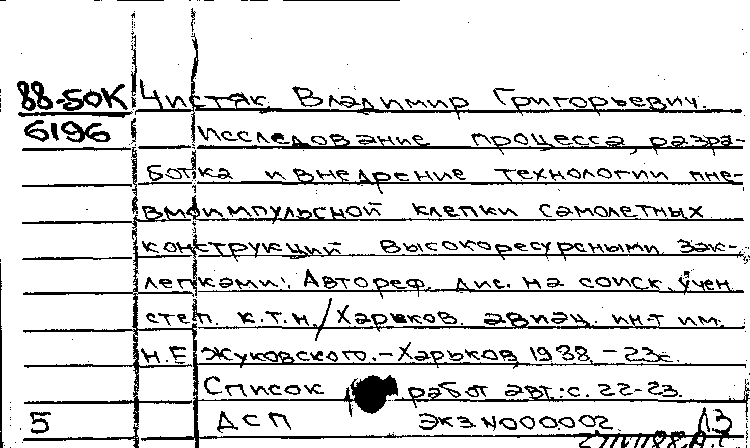 88-50К Чистяк Владимир Григорьевич.
6196 Исследование процесса, разра-
ботка и внедрение технологии пне-
вмоимпульсной клепки самолетных
конструкций высокоресурсными зак-
лепками: Автореф. дис. на соиск. учен.
степ. к.т.н./Харьков. авиац. ин-т им.
Н.Е Жуковского.-Харьков, 1988.-23с.
Список работ авт.: с. 22-23.
5 ДСП экз N000002